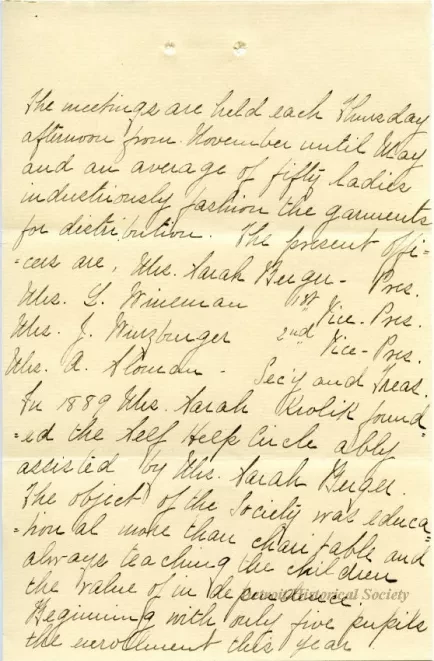 The meetings are held each Thursday
afternoon from November until May
and an average of fifty ladies
industriously fashion the garments
for distribution. The present offi-
=cers are, Mrs. Sarah Berger - Pres.
Mrs. L. Wineman 1st Vice-Pres.
Mrs. J. Wurzburger 2nd Vice-Pres.
Mrs. A. Sloman - Secy and Treas.
In 1889 Mrs. Sarah Krolik found=
=ed the Self Help Circle ably
assisted by Mrs. Sarah Berger.
The object of the Society was educa
=tional more than charitable and
always teaching the children
the value of independence.
Historical Society
Beginning with only five pupils
the enrollment this year